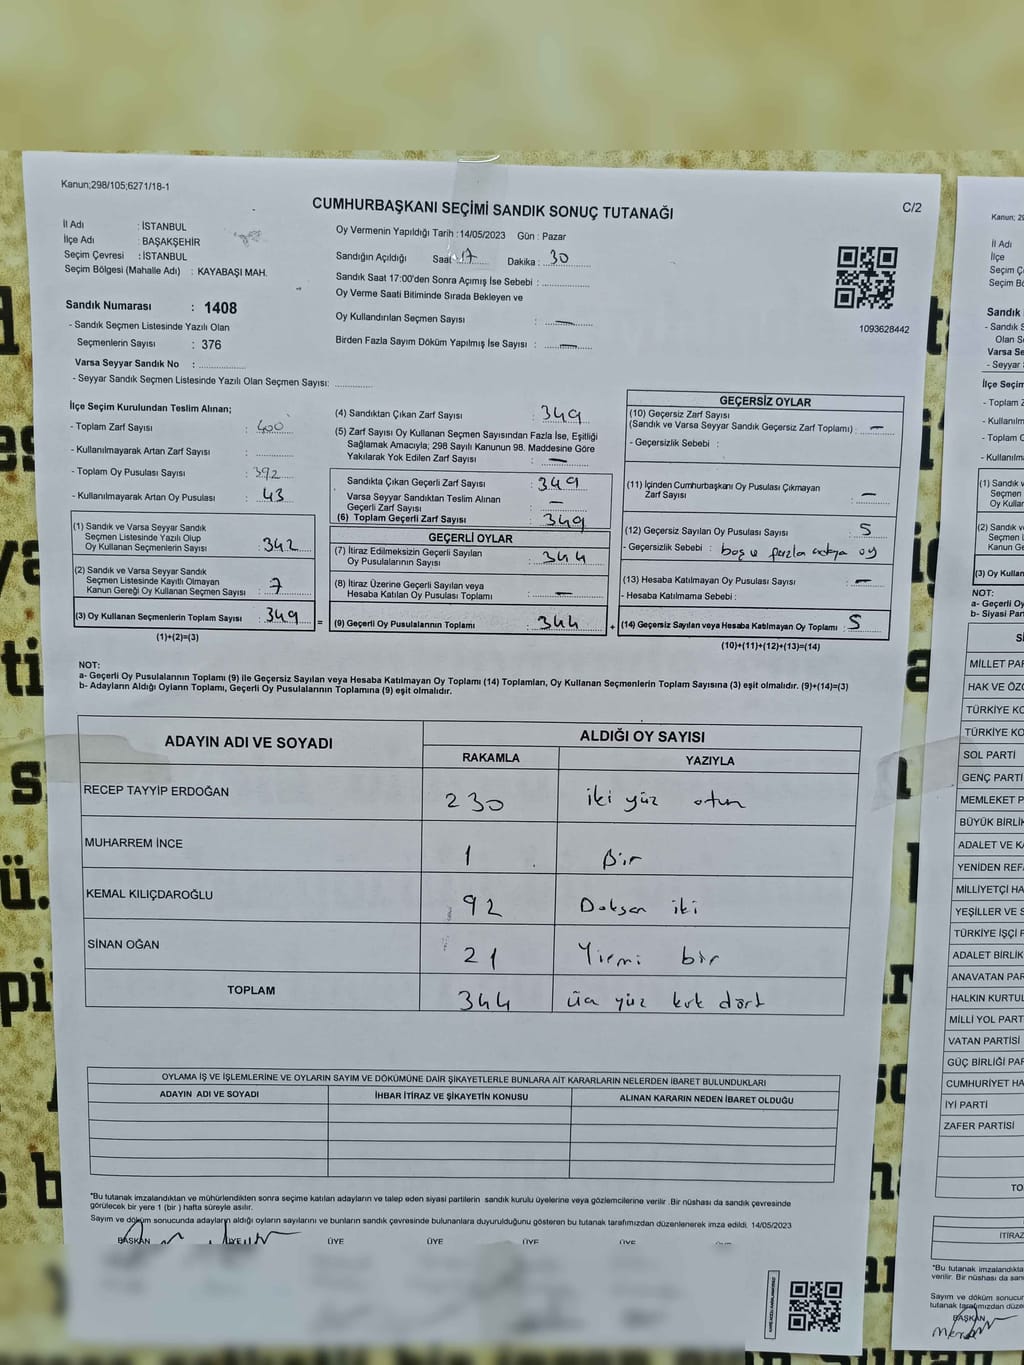 Kanun;298/105;6271/18-1
C/2
CUMHURBAŞKANI SEÇİMİ SANDIK SONUÇ TUTANAĞI
İl Adı : İSTANBUL
İlçe Adı : BAŞAKŞEHİR
Seçim Çevresi : İSTANBUL
Seçim Bölgesi (Mahalle Adı) : KAYABAŞI MAH.
Sandık Numarası : 1408
- Sandık Seçmen Listesinde Yazılı Olan
Seçmenlerin Sayısı : 376
Varsa Seyyar Sandık No :
- Seyyar Sandık Seçmen Listesinde Yazılı Olan Seçmen Sayısı:
Oy Vermenin Yapıldığı Tarih :14/05/2023 Gün : Pazar
Sandığın Açıldığı Saat : 17 Dakika : 30
Sandık Saat 17:00'den Sonra Açımış İse Sebebi :
Oy Verme Saati Bitiminde Sırada Bekleyen ve
Oy Kullandırılan Seçmen Sayısı : —
Birden Fazla Sayım Döküm Yapılmış İse Sayısı : —
1093628442
İlçe Seçim Kurulundan Teslim Alınan;
- Toplam Zarf Sayısı : 400
- Kullanılmayarak Artan Zarf Sayısı :
- Toplam Oy Pusulası Sayısı : 392
- Kullanılmayarak Artan Oy Pusulası : 43
(1) Sandık ve Varsa Seyyar Sandık
Seçmen Listesinde Yazılı Olup
Oy Kullanan Seçmenlerin Sayısı : 342
(2) Sandık ve Varsa Seyyar Sandık
Seçmen Listesinde Kayıtlı Olmayan
Kanun Gereği Oy Kullanan Seçmen Sayısı : 7
(3) Oy Kullanan Seçmenlerin Toplam Sayısı : 349 =
(1)+(2)=(3)
(4) Sandıktan Çıkan Zarf Sayısı : 349
(5) Zarf Sayısı Oy Kullanan Seçmen Sayısından Fazla İse, Eşitliği
Sağlamak Amacıyla; 298 Sayılı Kanunun 98. Maddesine Göre
Yakılarak Yok Edilen Zarf Sayısı : —
Sandıkta Çıkan Geçerli Zarf Sayısı : 349
Varsa Seyyar Sandıktan Teslim Alınan
Geçerli Zarf Sayısı : —
(6) Toplam Geçerli Zarf Sayısı : 349
GEÇERLİ OYLAR
(7) İtiraz Edilmeksizin Geçerli Sayılan
Oy Pusulalarının Sayısı : 344
(8) İtiraz Üzerine Geçerli Sayılan veya
Hesaba Katılan Oy Pusulası Toplamı : —
(9) Geçerli Oy Pusulalarının Toplamı : 344 +
GEÇERSİZ OYLAR
(10) Geçersiz Zarf Sayısı
(Sandık ve Varsa Seyyar Sandık Geçersiz Zarf Toplamı) : —
- Geçersizlik Sebebi :
(11) İçinden Cumhurbaşkanı Oy Pusulası Çıkmayan
Zarf Sayısı : —
(12) Geçersiz Sayılan Oy Pusulası Sayısı : 5
- Geçersizlik Sebebi : boş ve fazla adaya oy
(13) Hesaba Katılmayan Oy Pusulası Sayısı : —
- Hesaba Katılmama Sebebi :
(14) Geçersiz Sayılan veya Hesaba Katılmayan Oy Toplamı : 5
(10)+(11)+(12)+(13)=(14)
NOT:
a- Geçerli Oy Pusulalarının Toplamı (9) ile Geçersiz Sayılan veya Hesaba Katılmayan Oy Toplamı (14) Toplamları, Oy Kullanan Seçmenlerin Toplam Sayısına (3) eşit olmalıdır. (9)+(14)=(3)
b- Adayların Aldığı Oyların Toplamı, Geçerli Oy Pusulalarının Toplamına (9) eşit olmalıdır.
ADAYIN ADI VE SOYADI ALDIĞI OY SAYISI
RAKAMLA YAZIYLA
RECEP TAYYİP ERDOĞAN 230 iki yüz otuz
MUHARREM İNCE 1 Bir
KEMAL KILIÇDAROĞLU 92 Doksan iki
SİNAN OĞAN 21 Yirmi bir
TOPLAM 344 üç yüz kırk dört
OYLAMA İŞ VE İŞLEMLERİNE VE OYLARIN SAYIM VE DÖKÜMÜNE DAİR ŞİKAYETLERLE BUNLARA AİT KARARLARIN NELERDEN İBARET BULUNDUKLARI
ADAYIN ADI VE SOYADI İHBAR İTİRAZ VE ŞİKAYETİN KONUSU ALINAN KARARIN NEDEN İBARET OLDUĞU
*Bu tutanak imzalandıktan ve mühürlendikten sonra seçime katılan adayların ve talep eden siyasi partilerin sandık kurulu üyelerine veya gözlemcilerine verilir .Bir nüshası da sandık çevresinde
görülecek bir yere 1 (bir ) hafta süreyle asılır.
Sayım ve döküm sonucunda adayların aldığı oyların sayılarını ve bunların sandık çevresinde bulunanlara duyurulduğunu gösteren bu tutanak tarafımızdan düzenlenerek imza edildi. 14/05/2023
BAŞKAN ÜYE ÜYE ÜYE ÜYE ÜYE
Kanun; 29
İl Adı
İlçe
Seçim Ç
Seçim B
Sandık
- Sandık S
Olan S
Varsa Se
- Seyyar
İlçe Seçim
- Toplam Z
- Kullanılm
- Toplam O
- Kullanılm
(1) Sandık v
Seçmen
Oy Kullan
(2) Sandık v
Seçmen
Kanun Ge
(3) Oy Kullan
NOT:
a- Geçerli Oy
b- Siyasi Par
Sİ
MİLLET PAR
HAK VE ÖZG
TÜRKİYE KO
TÜRKİYE KO
SOL PARTİ
GENÇ PARTİ
MEMLEKET P
BÜYÜK BİRLİK
ADALET VE KA
YENİDEN REFA
MİLLİYETÇİ HA
YEŞİLLER VE S
TÜRKİYE İŞÇİ P
ADALET BİRLİK
ANAVATAN PAR
HALKIN KURTUL
MİLLİ YOL PARTİ
VATAN PARTİSİ
GÜÇ BİRLİĞİ PAR
CUMHURİYET HA
İYİ PARTİ
ZAFER PARTİSİ
TO
İTİRAZ
*Bu tutanak imzalandıkta
verilir. Bir nüshası da san
Sayım ve döküm sonucun
tutanak tarafımızdan düze
BAŞKAN